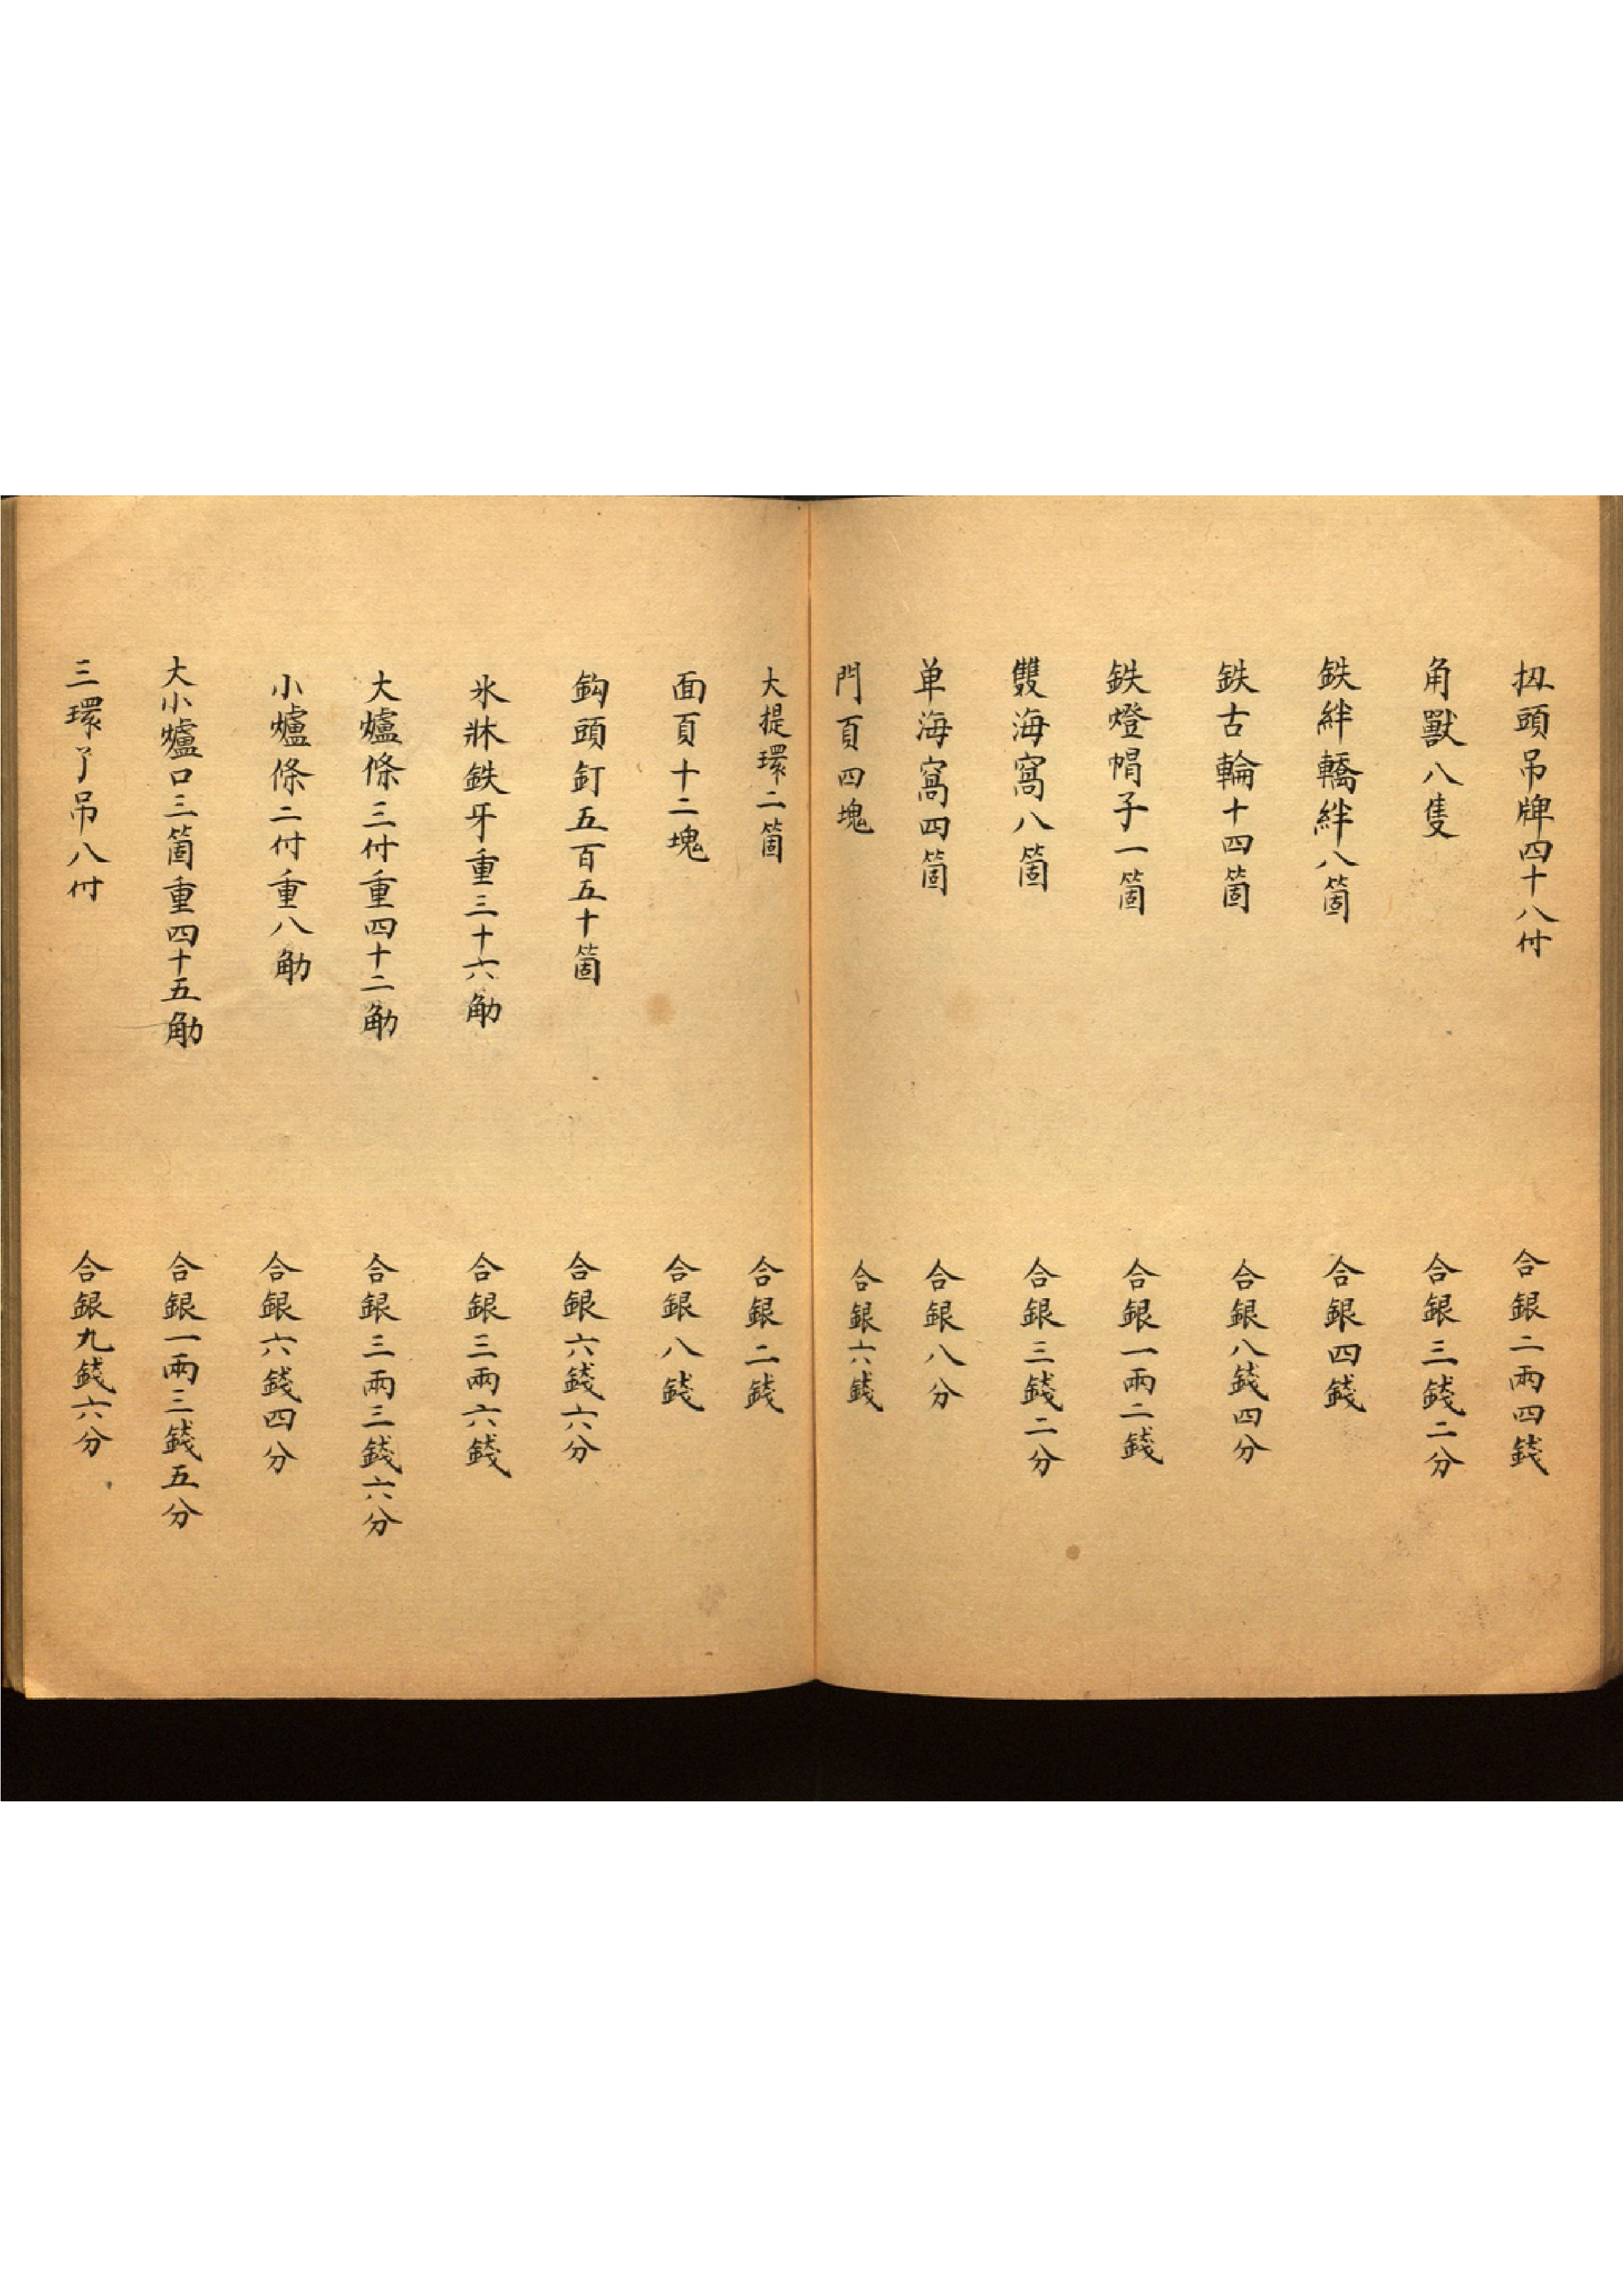 扭頭吊牌四十八付　合銀二兩四錢
角獸八隻　合銀三錢二分
鉄絆轎絆八箇　合銀四錢
鉄古輪十四箇　合銀八錢四分
鉄燈帽子一箇　合銀一兩二錢
雙海窩八箇　合銀三錢二分
单海窩四箇　合銀八分
門頁四塊　合銀六錢
大提環二箇　合銀二錢
面頁十二塊　合銀八錢
鈎頭釘五百五十箇　合銀六錢六分
氷牀鉄牙重三十六觔　合銀三兩六錢
大爐條三付重四十二觔　合銀三兩三錢六分
小爐條二付重八觔　合銀六錢四分
大小爐口三箇重四十五觔　合銀一兩三錢五分
三環了吊八付　合銀九錢六分